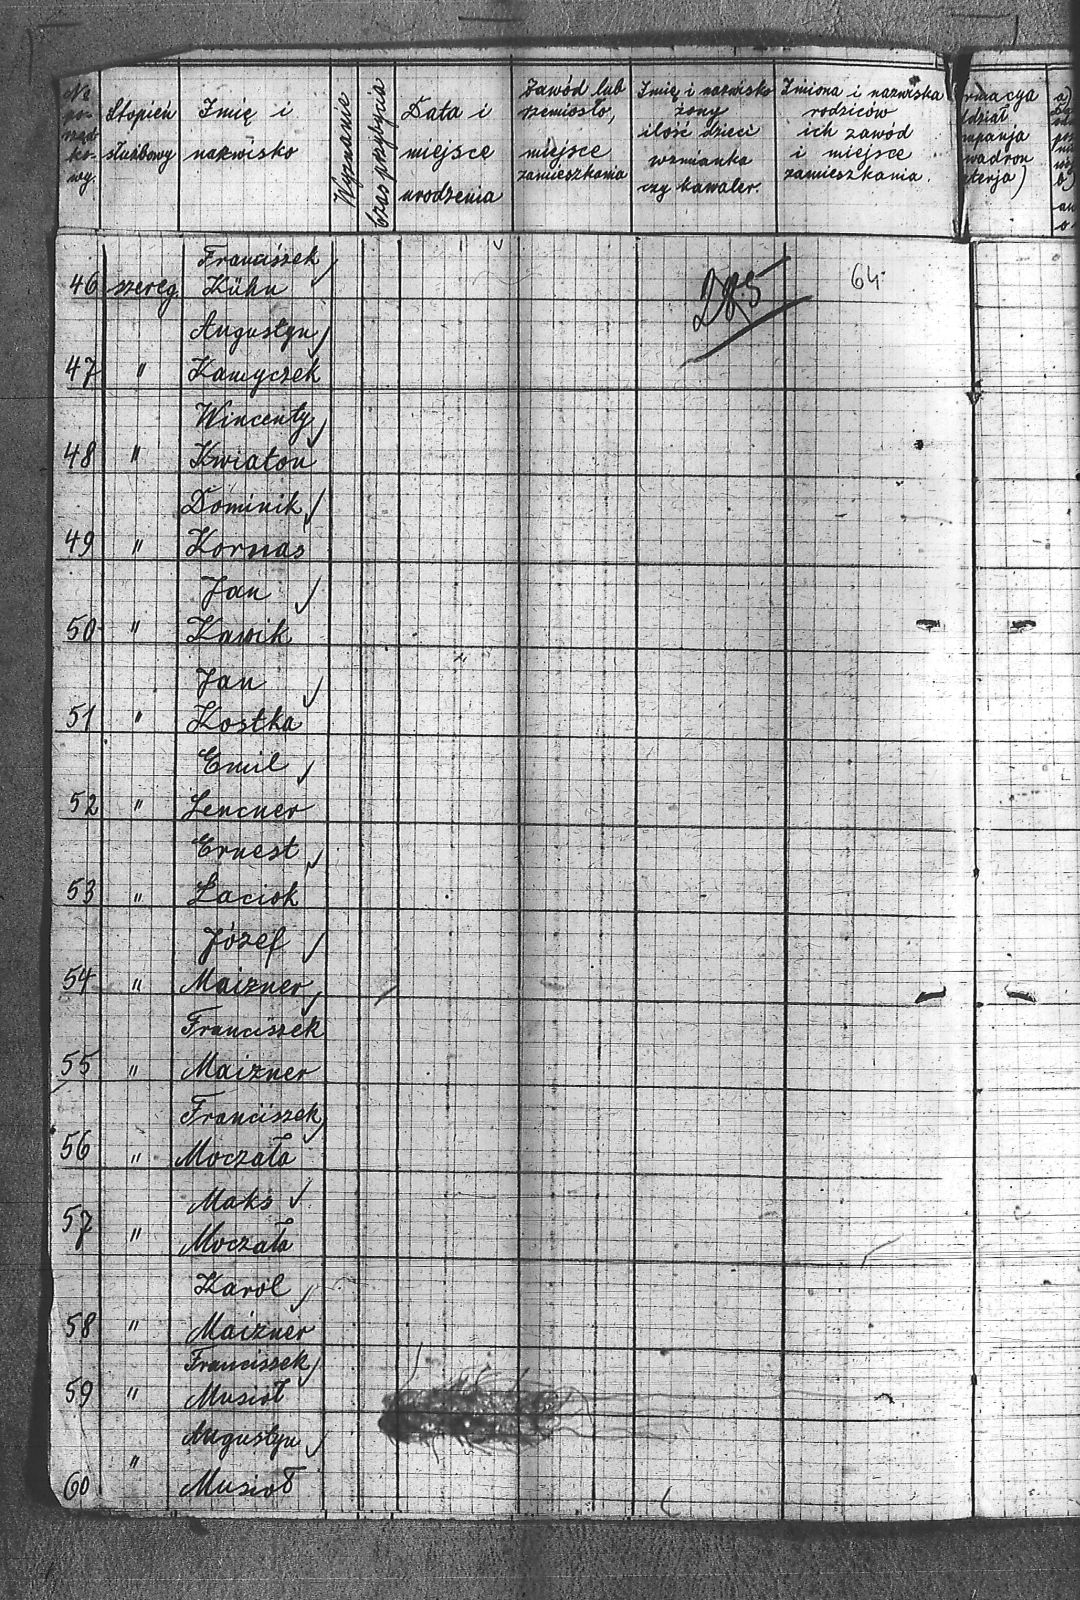 No
po-
rząd-
ko-
wy.
Stopień
służbowy
Imię i
nazwisko
Wyznanie
Czas przybycia
Data i
miejsce
urodzenia
Zawód lub
rzemiosło,
miejsce
zamieszkania
Imię i nazwisko
żony
ilość dzieci
wzmianka
czy kawaler.
Imiona i nazwiska
rodziców
ich zawód
i miejsce
zamieszkania.
rmacya
ddział
mpanja
wadron
terja)
a)
b)
285
64
Franciszek
46 szereg. Kühn
Augustyn
47 " Kamyczek
Wincenty
48 " Kwiaton
Dominik
49 " Kornas
Jan
50 " Kawik
Jan
51 " Kostka
Emil
52 " Lencner
Ernest
53 " Łaciok
Józef
54 " Maizner
Franciszek
55 " Maizner
Franciszek
56 " Moczała
Maks
57 " Moczała
Karol
58 " Maizner
Franciszek
59 " Musioł
Augustyn
60 " Musioł